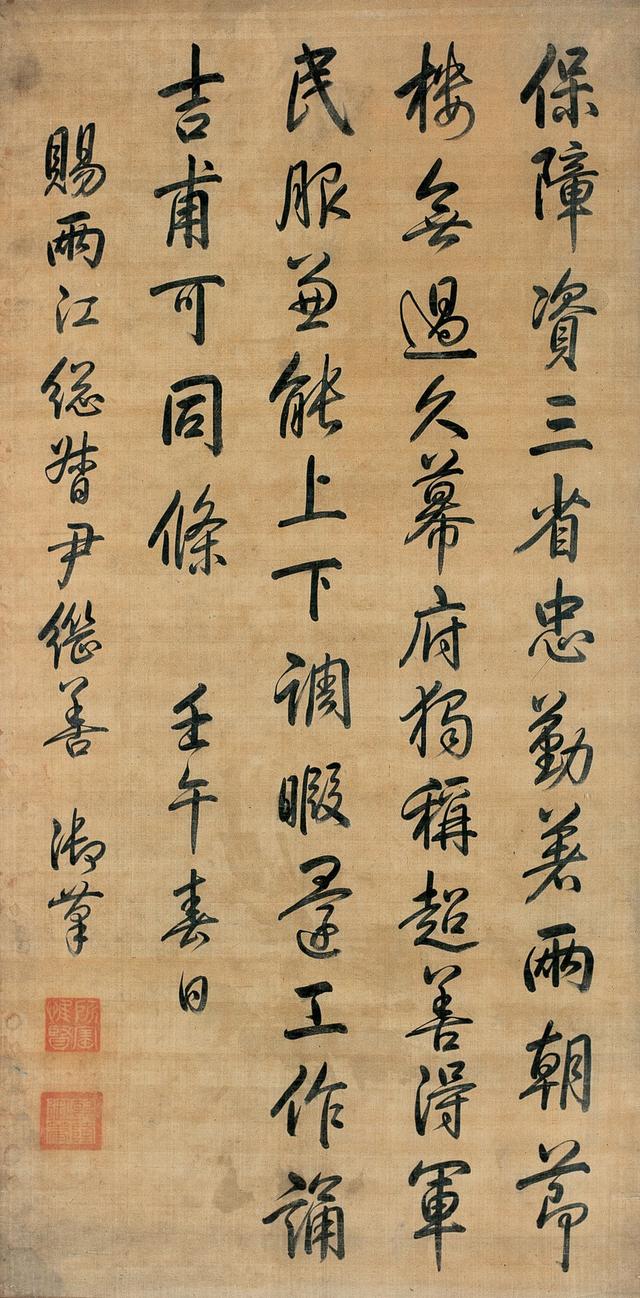 保障資三省忠勤著兩朝節
樓無過久幕府獨稱超善得軍
民服兼能上下調暇還工作誦
吉甫可同條 壬午春日
賜兩江總督尹繼善 御筆
所寶惟賢